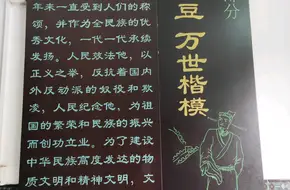 年来一直受到人们的称
颂，并作为全民族的优
秀文化，一代一代承续
发扬。人民效法他，以
正义之举，反抗着国内
外反动派的奴役和欺
凌，人民纪念他，为祖
国的繁荣和民族的振兴
而创功立业。为了建设
中华民族高度发达的物
质文明和精神文明，文
分
豆 万世楷模